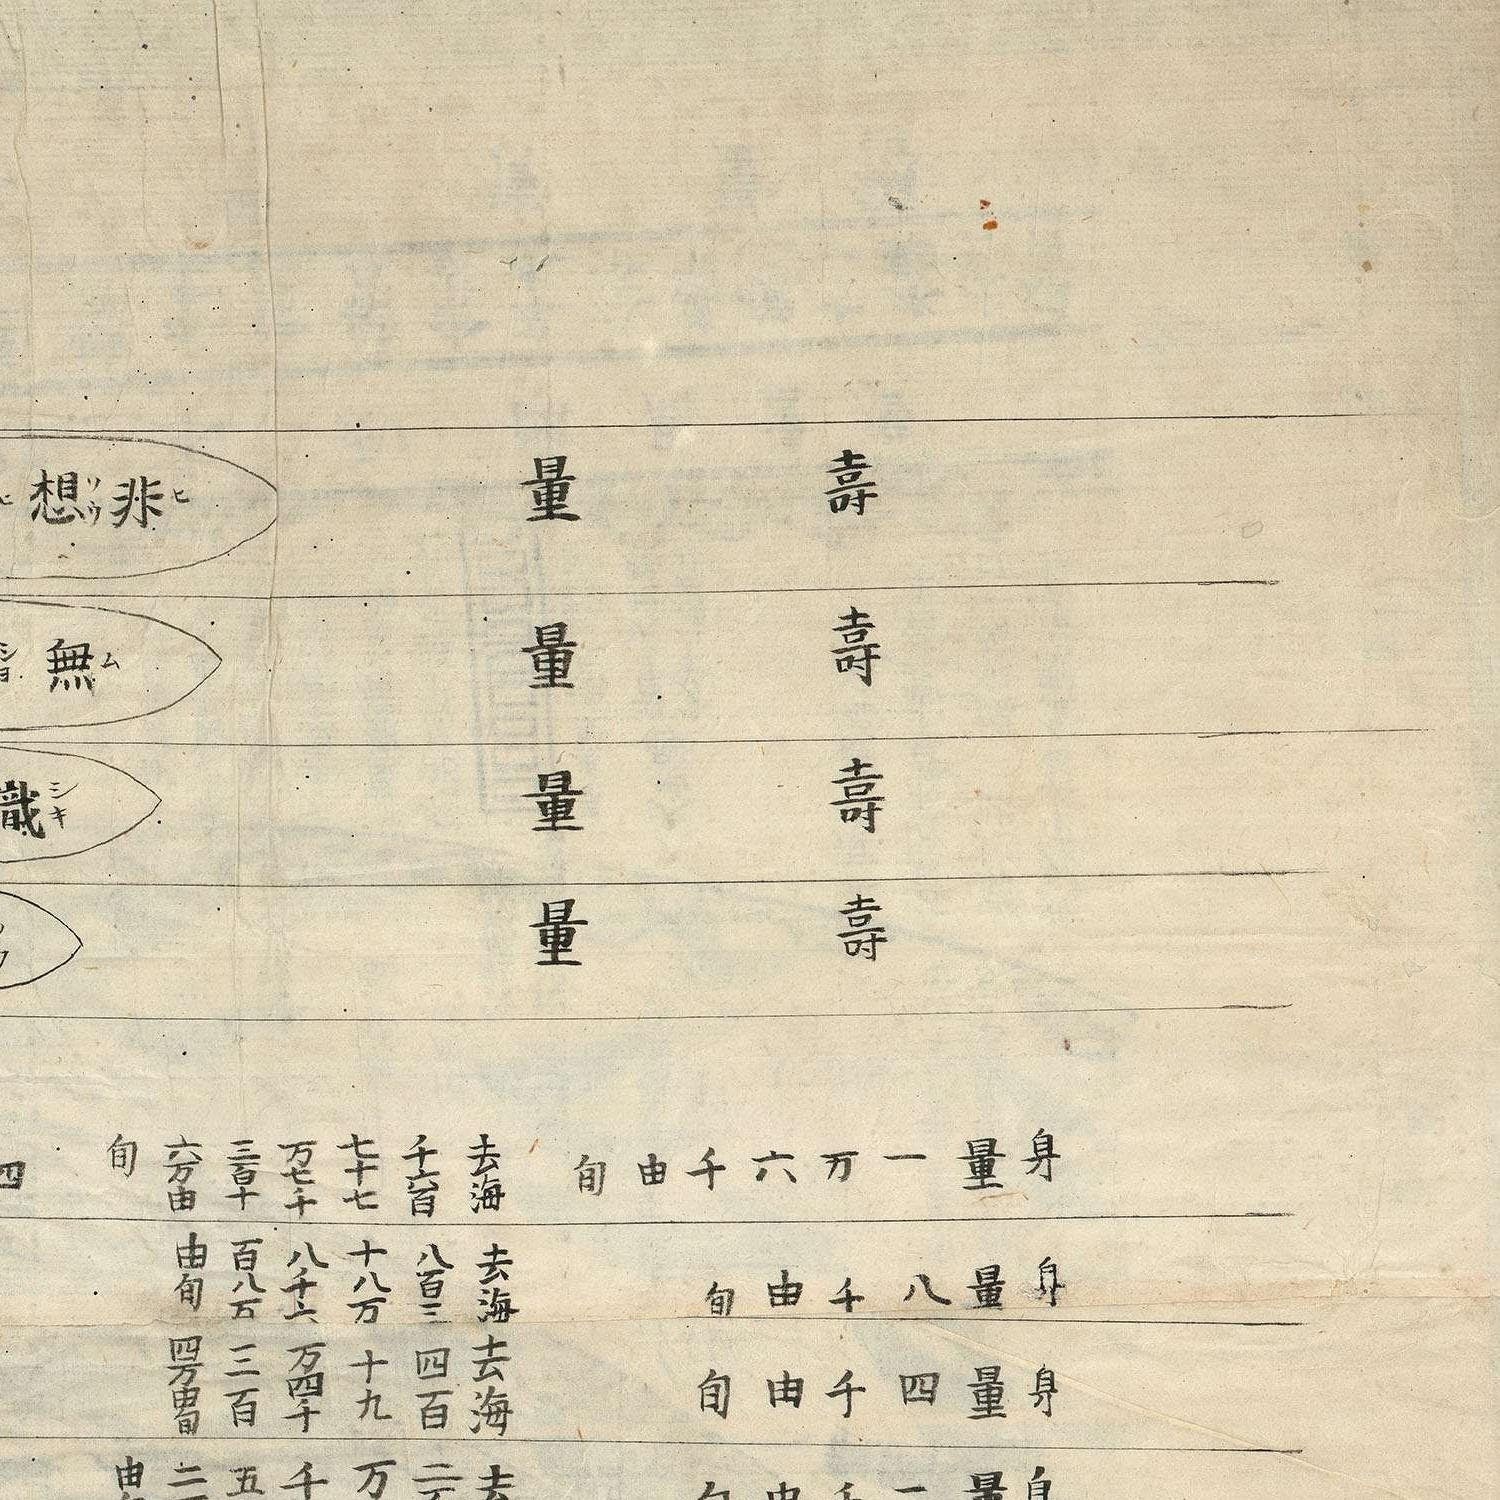 壽 量 非ヒ想ソウ
壽 量 無ム
壽 量 識シキ
壽 量
身量一万六千由旬
去海
千六百
七十七
万七千
三百十
六万由
旬
四
身量八千由旬
去海
八百三
十八万
八千六
百八万
由旬
身量四千由旬
去海
四百
十九
万四千
三百
四万由旬
身量
去
二
万
千
五
二
由